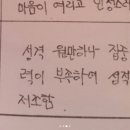 마음이 여리고 인정스러
성격 원만하나 집중
력이 부족하여 성적
저조함